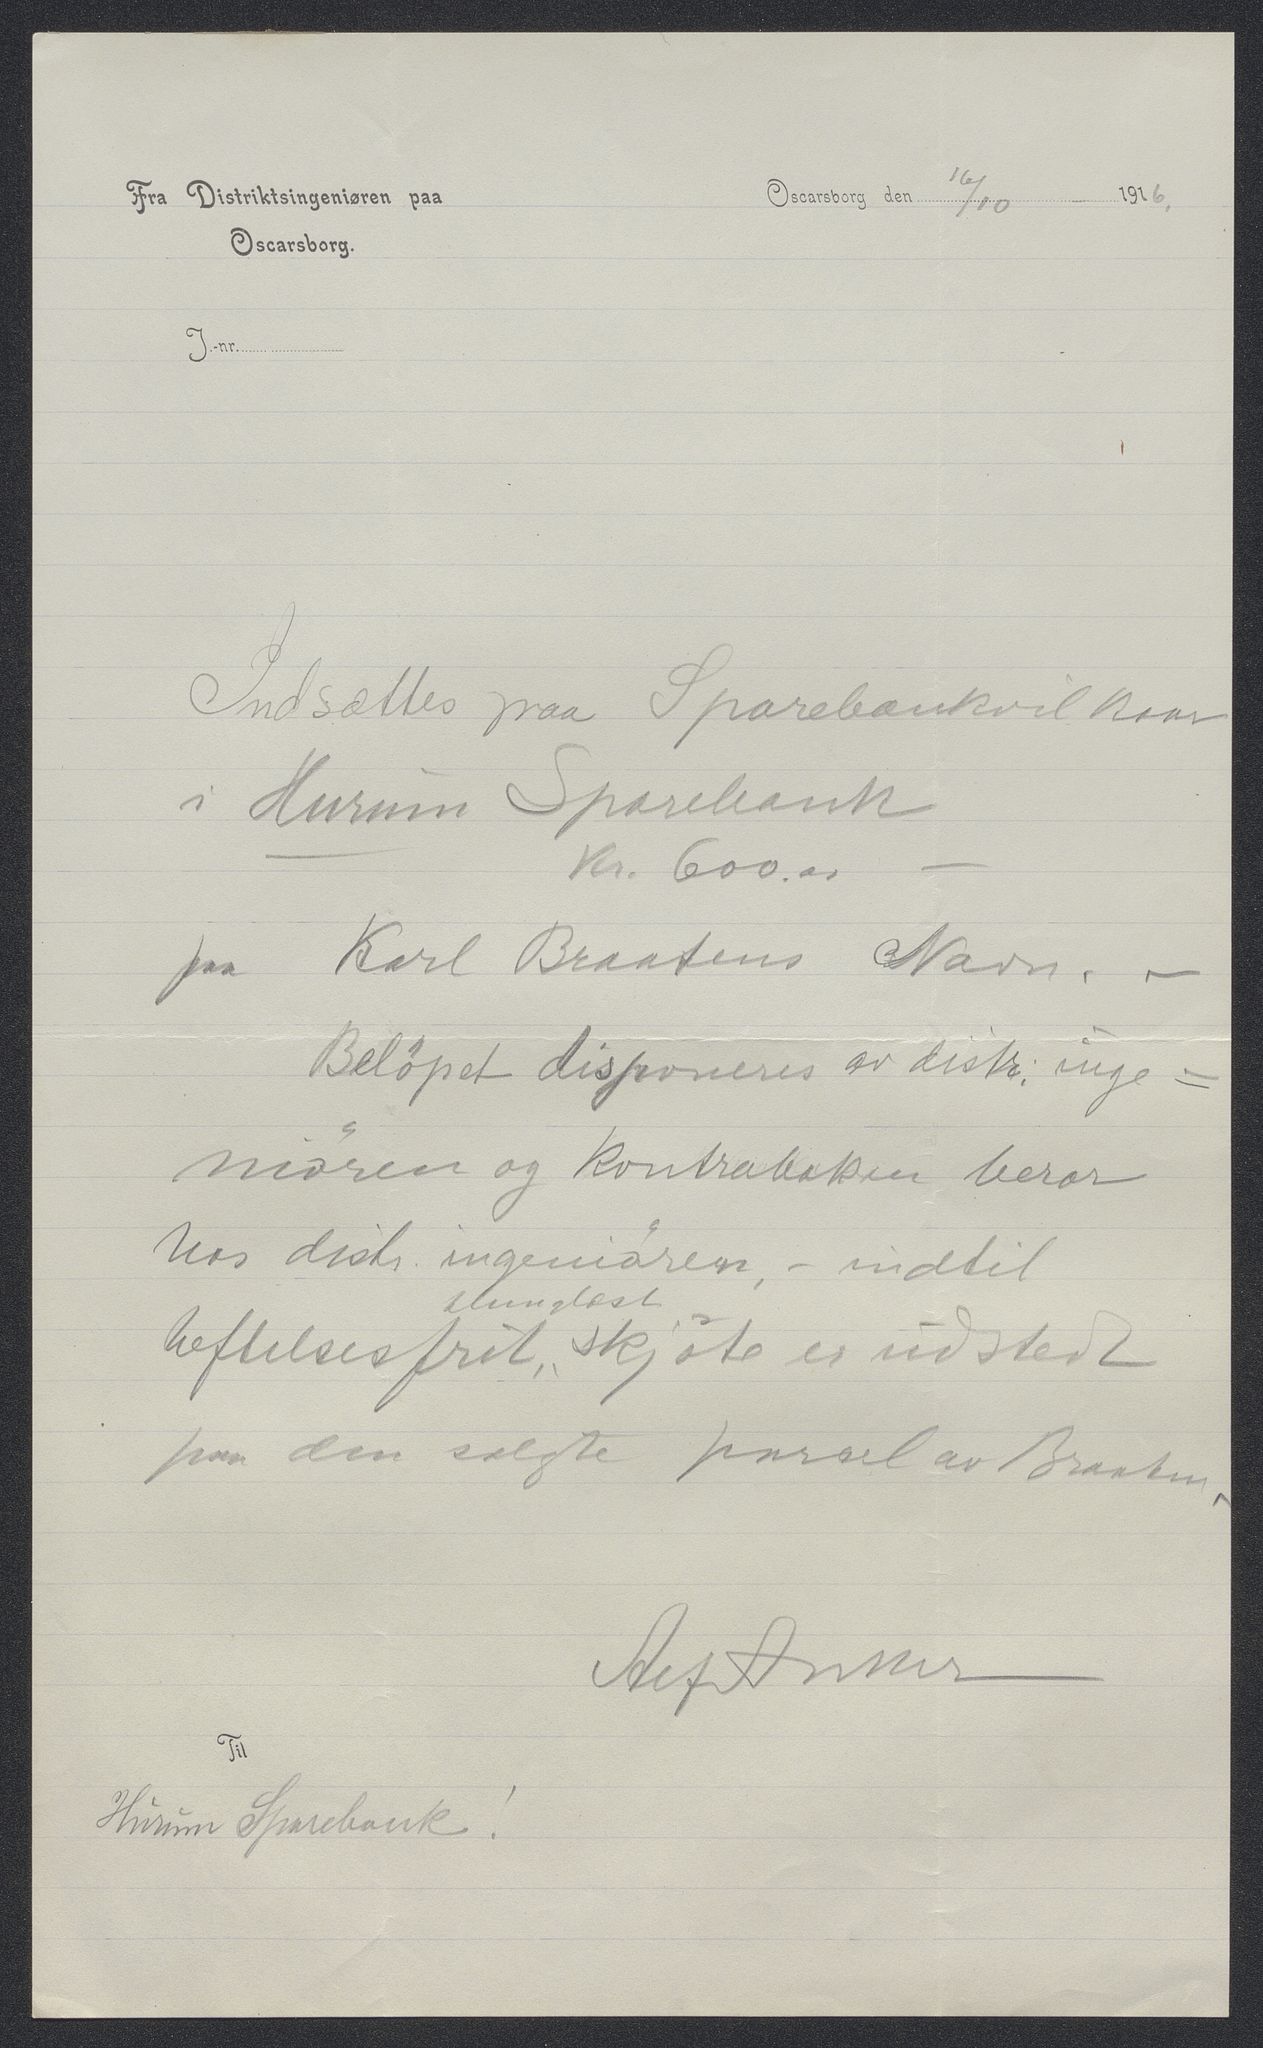 Fra Distriktsingeniøren paa
Oscarsborg.
Oscarsborg den 16/10 1916.
J.-nr.
Indsættes paa Sparebankvilkaar
i Hurum Sparebank
Kr. 600.00 —
paa Karl Braatens Navn. —
Beløpet disponeres av distr. inge=
niøren og Kontraboken beror
hos distr. ingeniøren, – indtil
tinglæst
heftelsesfrit, skjøte er udstedt
paa den solgte parsel av Braaten.
Alf Anker
Til
Hurum Sparebank!